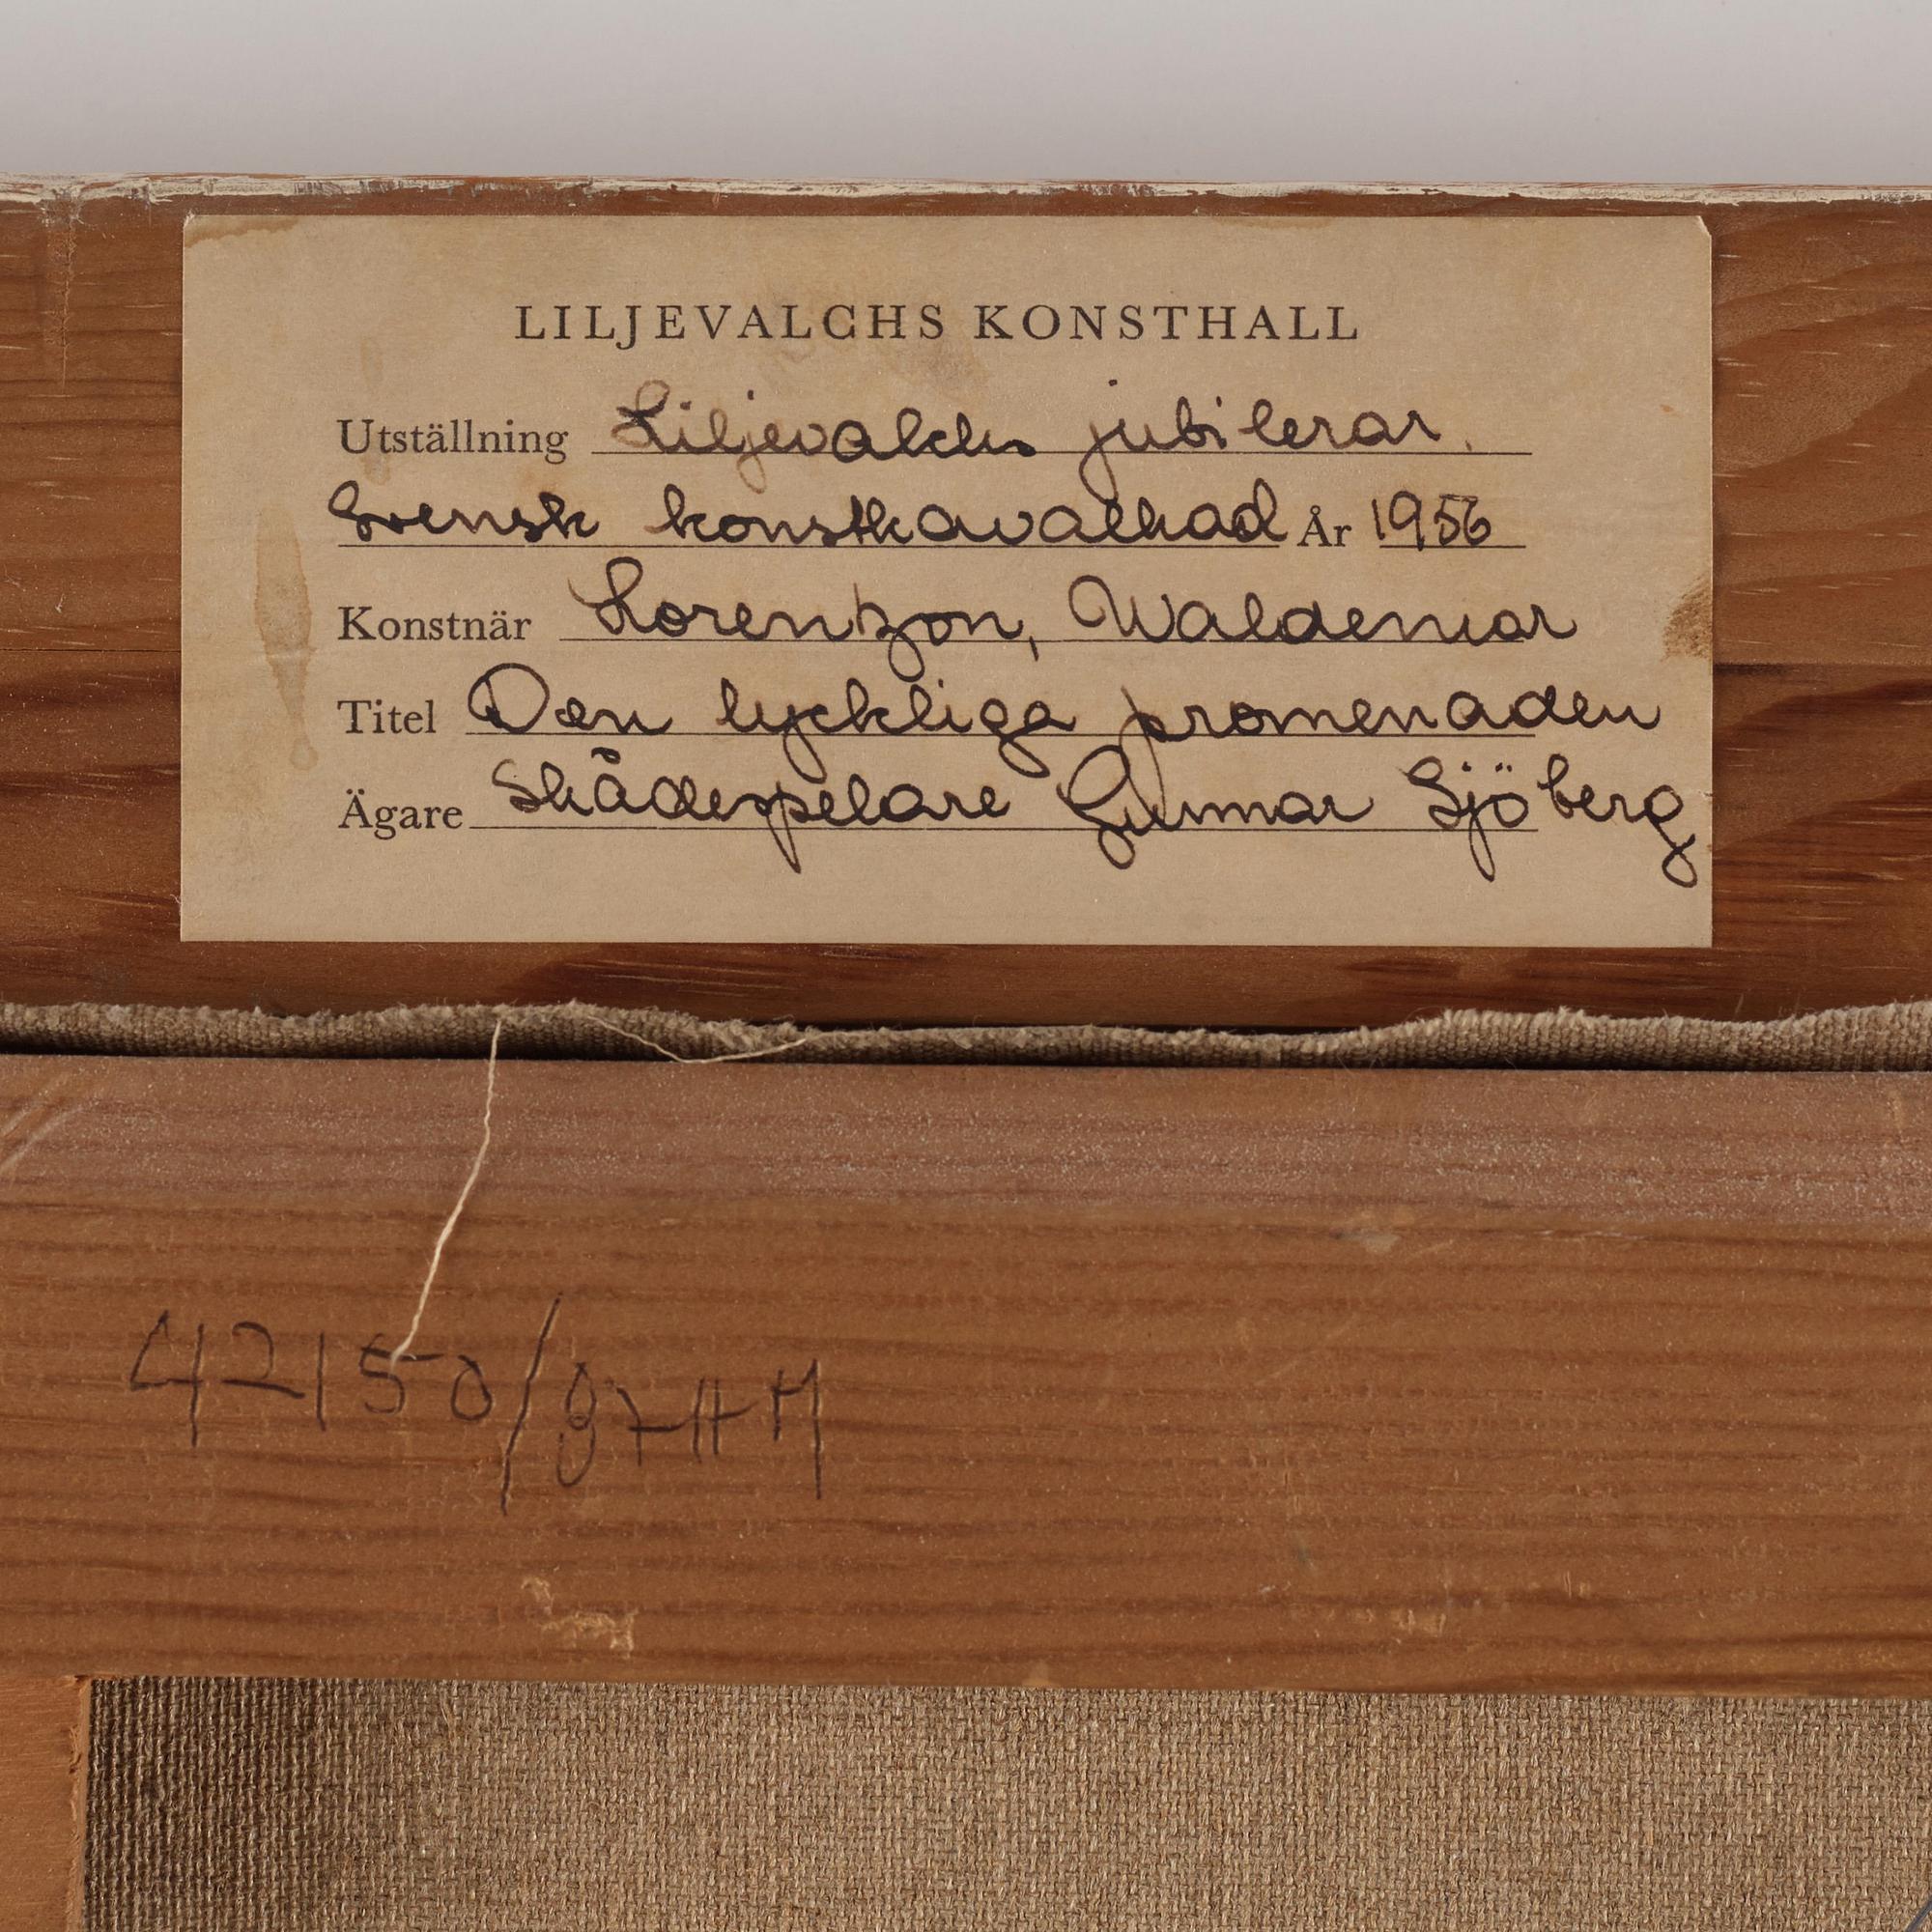 LILJEVALCHS KONSTHALL
Utställning Liljevalchs jubilerar.
Svensk konstkavalkad År 1956
Konstnär Lorentzon, Waldemar
Titel Den lyckliga promenaden
Ägare Skådespelare Gunnar Sjöberg
42150/97HM